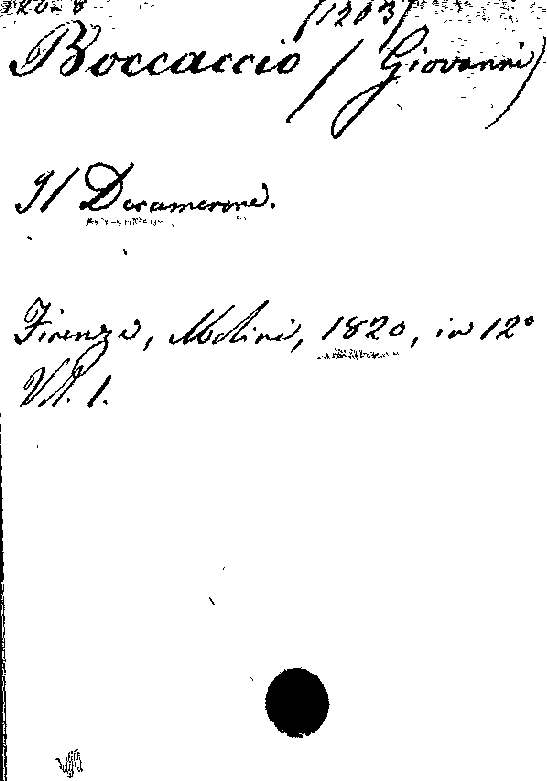 (1203)
Boccaccio (Giovanni)
Il Decamerone.
Firenze, Molini, 1820, in 12°
Vol. 1.